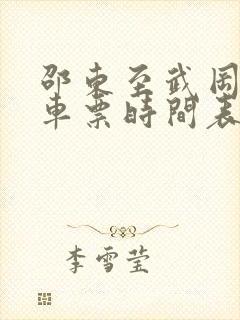 邵東至武岡
車票時間表
李雪莹